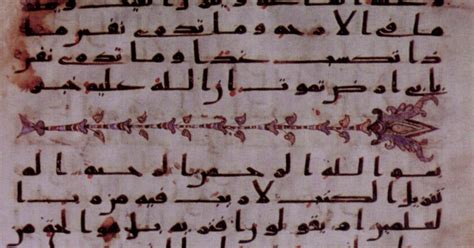 ما في الارحام وما تدري نفس ما
ذا تكسب غدا وما تدري نفس
باي ارض تموت ان الله عليم خبير
بسم الله الرحمن الرحيم الم
تنزيل الكتب لا ريب فيه من رب ا
لعلمين ام يقولون افتريه بل هو الحق من